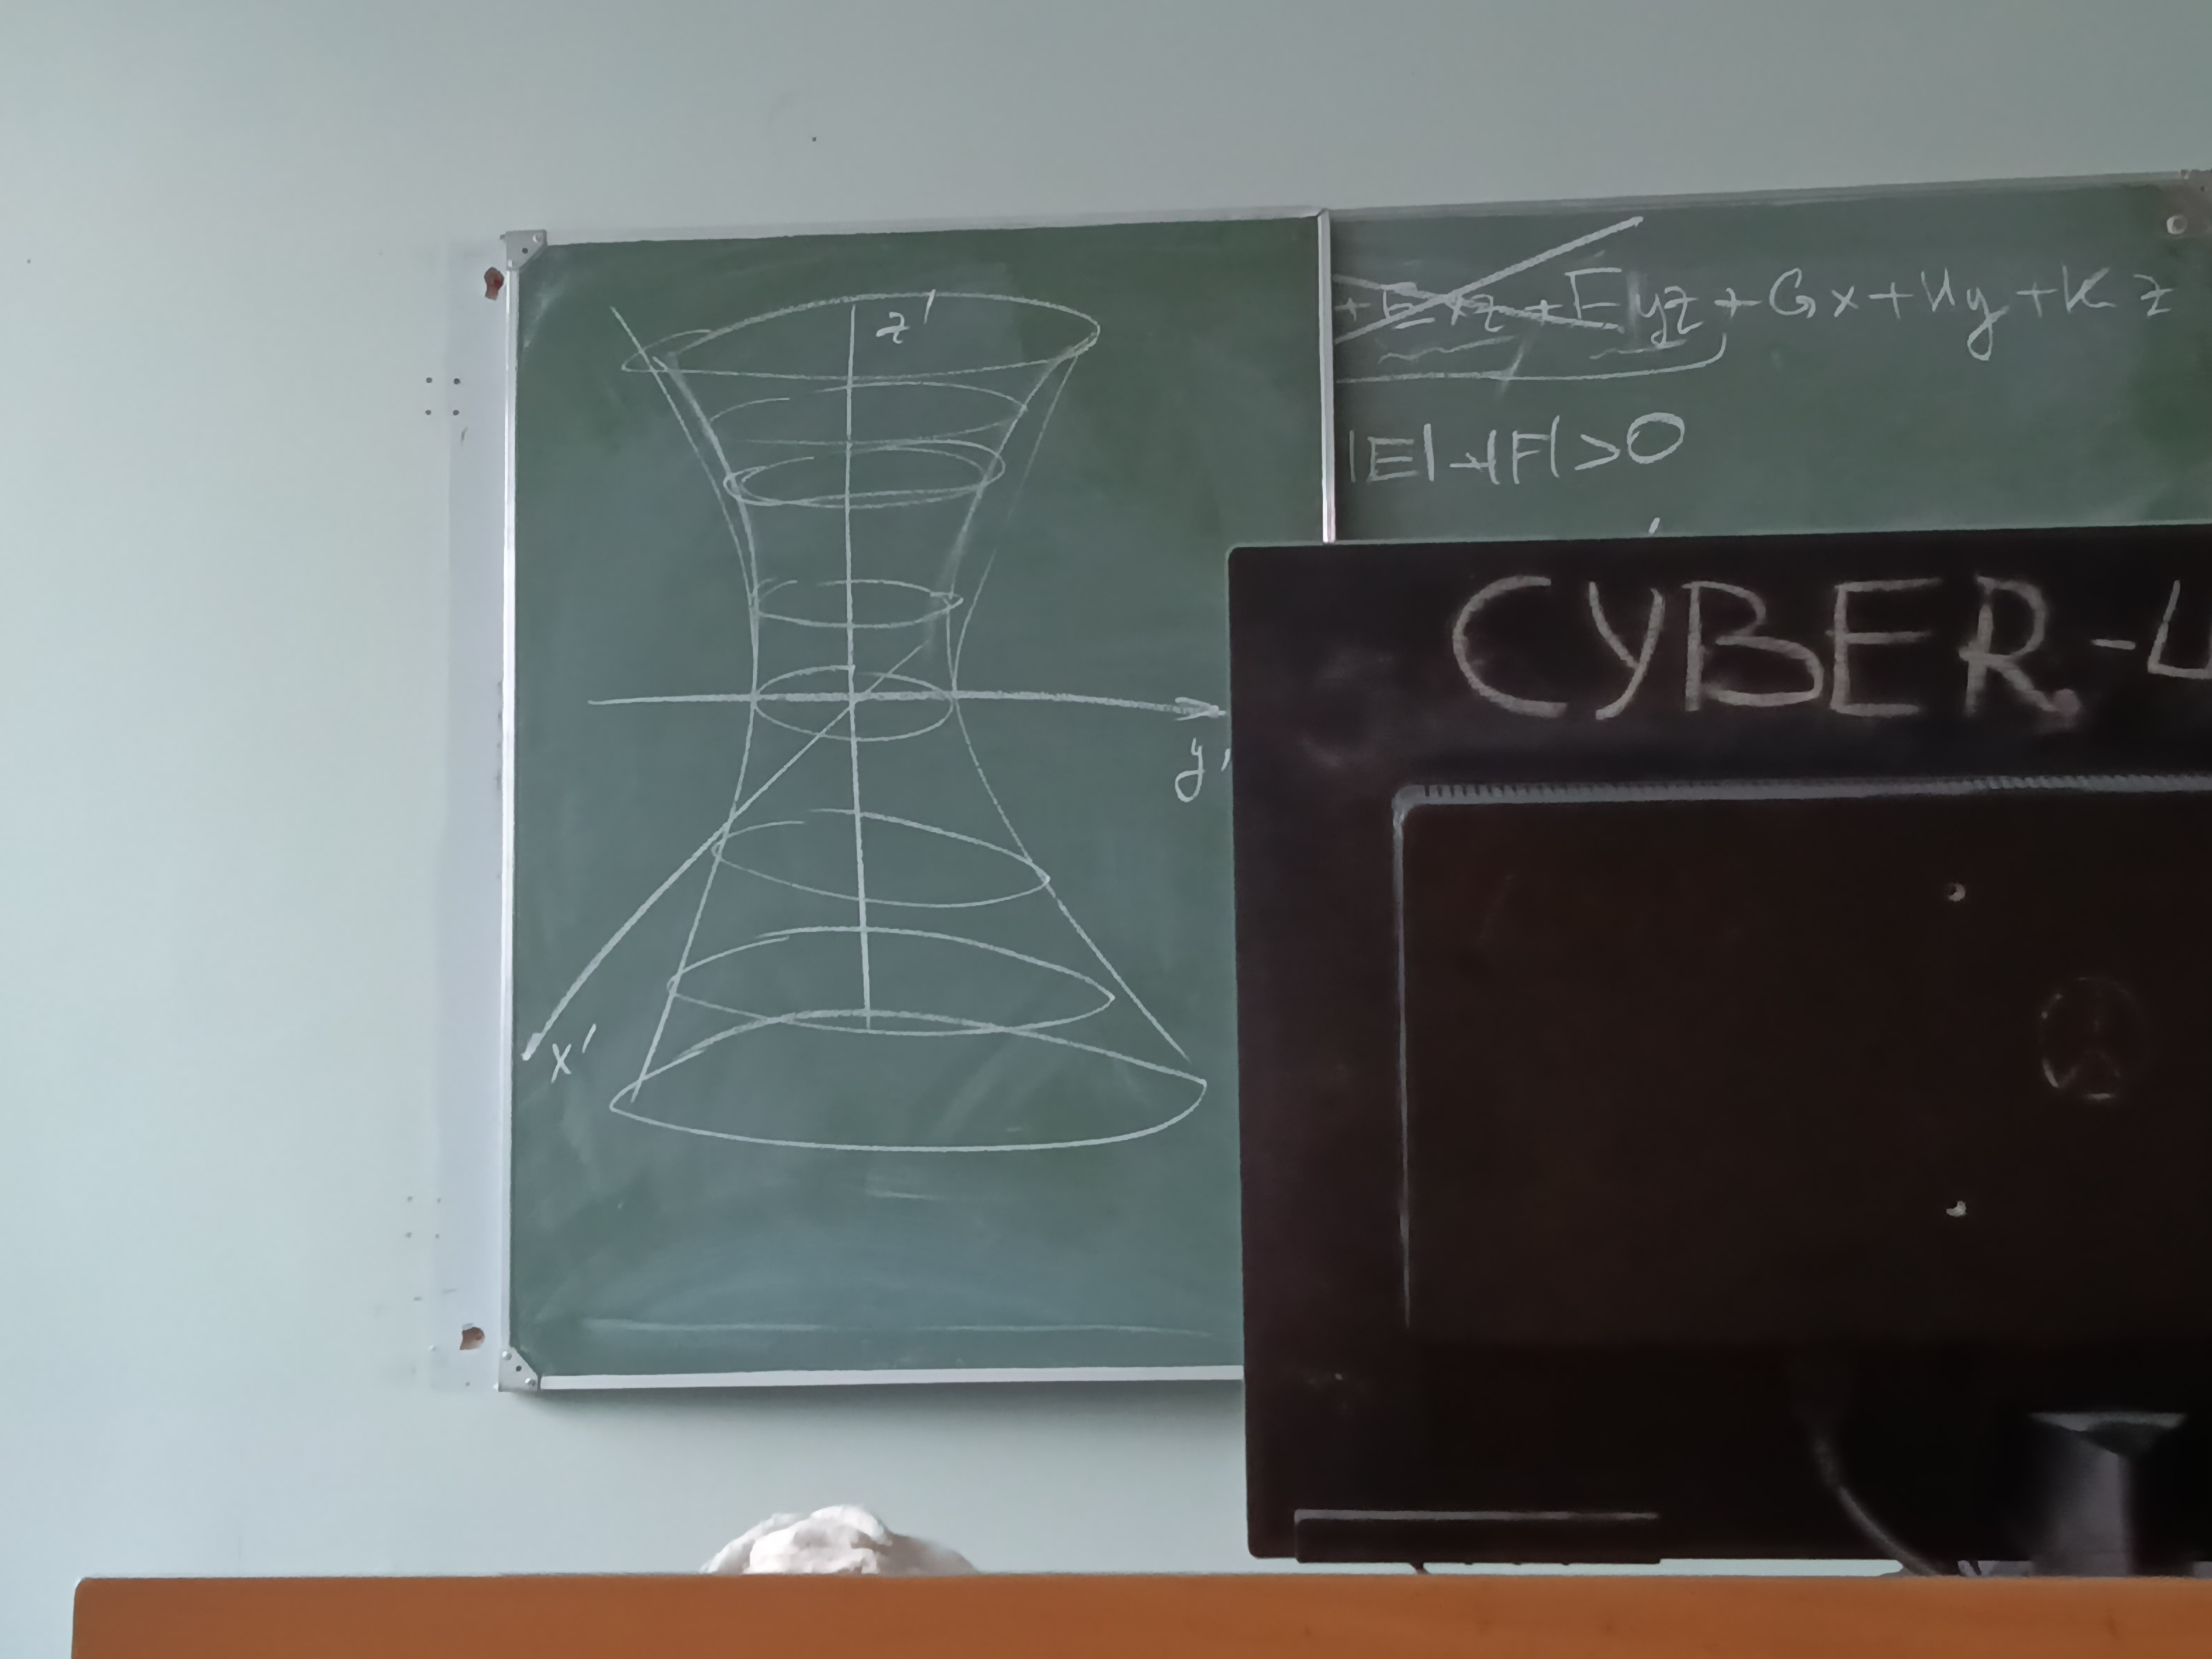 z'
y'
x'
+Exz+Fyz+Gx+Hy+Kz
|E|+|F|>0
CYBER-